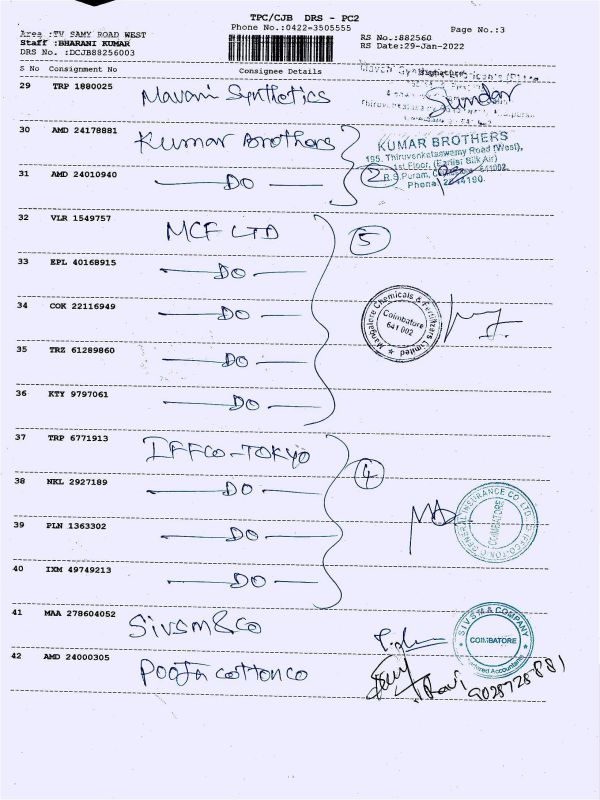 TPC/CJB DRS - PC2
Phone No.:0422-3505555
Page No.:3
Area :TV SAMY ROAD WEST
Staff :BHARANI KUMAR
DRS No. :DCJB88256003
RS No.:882560
RS Date:29-Jan-2022
S No Consignment No Consignee Details Signature
29 TRP 1880025 Mavani Synthetics Sundar
30 AMD 24178881 Kumar Brothers
KUMAR BROTHERS
195, Thiruvenkataswamy Road (West),
1st Floor, (Earlier Silk Air)
R.S.Puram, 641002
Phone
31 AMD 24010940 — DO — 2
32 VLR 1549757 MCF LTD 5
33 EPL 40168915 — DO —
34 COK 22116949 — DO —
Mangalore Chemicals & Fertilizers Limited
Coimbatore
641 002
35 TRZ 61289860 — DO —
36 KTY 9797061 — DO —
37 TRP 6771913 IFFCO-TOKYO 4
38 NKL 2927189 — DO —
39 PLN 1363302 — DO —
GENERAL INSURANCE CO LTD
COIMBATORE
40 IXM 49749213 — DO —
41 MAA 278604052 Sivsm&co
SIVSM & COMPANY
COIMBATORE
Chartered Accountants
42 AMD 24000305 Pooja cotton co
Ravi 9028728881